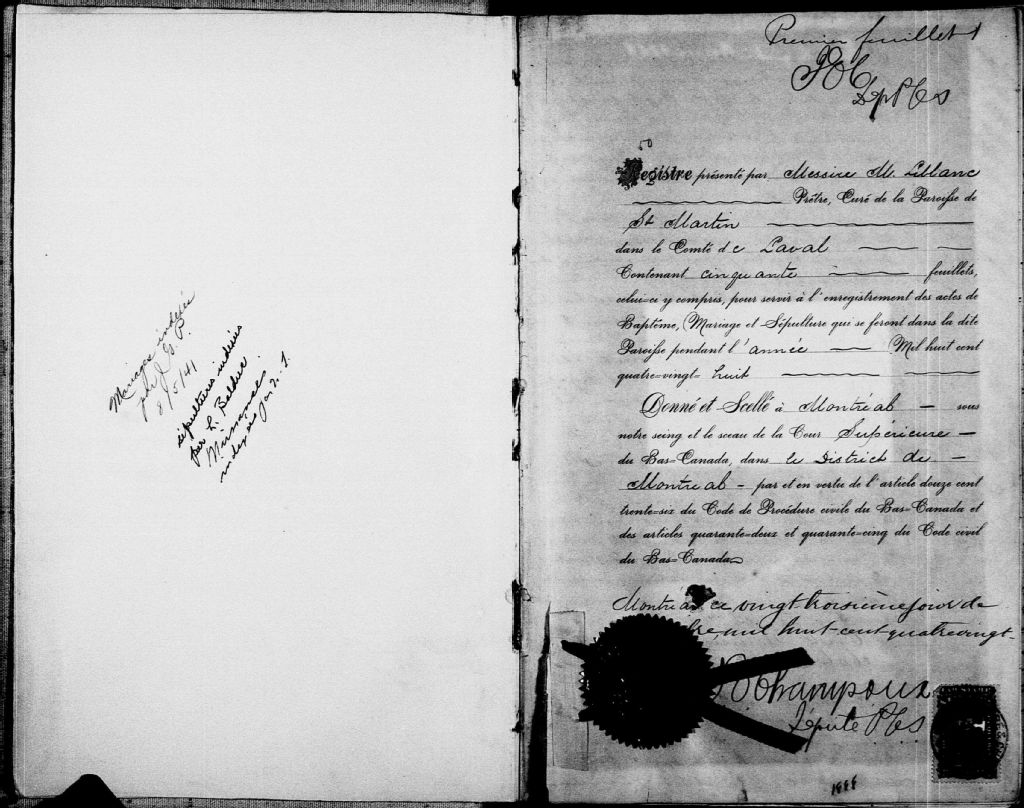 Mariage indexés
par J. G. P.
8/5/41
sépultures indexées
par L. Balduc
indexés
Premier feuillet 1
Dep P C S
50
Registre présenté par Messire M. Leblanc
Prêtre, Curé de la Paroisse de
St Martin
dans le Comté de Laval
Contenant cinquante feuillets,
celui-ci y compris, pour servir à l'enregistrement des actes de
Baptême, Mariage et Sépulture qui se feront dans la dite
Paroisse pendant l'année Mil huit cent
quatre-vingt huit
Donné et Scellé à Montréal sous
notre seing et le sceau de la Cour Supérieure
du Bas-Canada, dans le District de
Montréal par et en vertu de l'article douze cent
trente-six du Code de Procédure civile du Bas-Canada et
des articles quarante-deux et quarante-cinq du Code civil
du Bas-Canada
Montréal ce vingt troisième jour de
bre mil huit-cent quatrevingt-
Champoux
Député P C S
1888